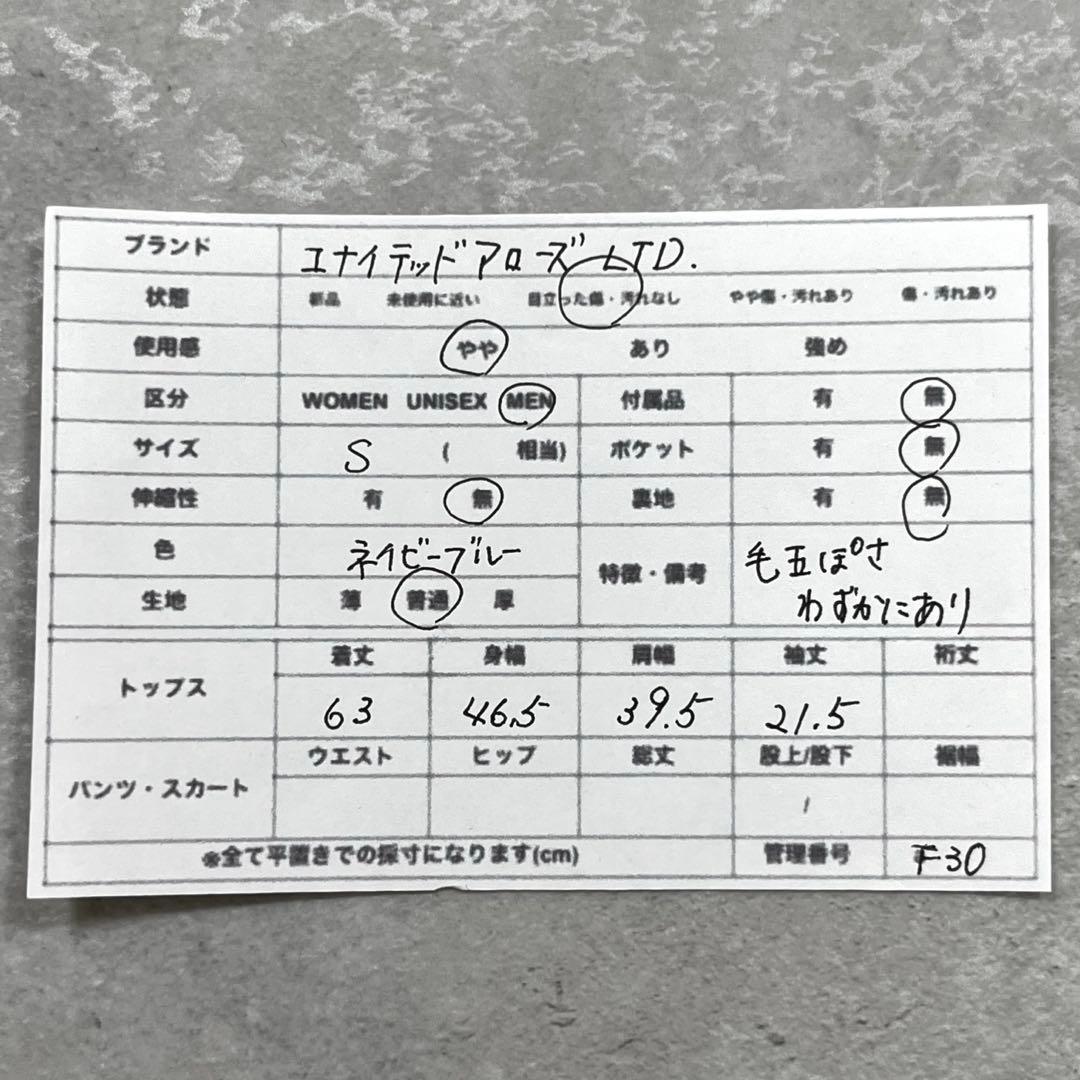 ブランド エナイテッドアローズ LTD.
状態 新品 未使用に近い 目立った傷・汚れなし やや傷・汚れあり 傷・汚れあり
使用感 やや あり 強め
区分 WOMEN UNISEX MEN 付属品 有 無
サイズ S ( 相当) ポケット 有 無
伸縮性 有 無 裏地 有 無
色 ネイビーブルー 特徴・備考 毛玉ぽさ
わずかにあり
生地 薄 普通 厚
トップス 着丈 身幅 肩幅 袖丈 裄丈
63 46.5 39.5 21.5
パンツ・スカート ウエスト ヒップ 総丈 股上/股下 裾幅
/
※全て平置きでの採寸になります(cm) 管理番号 F30